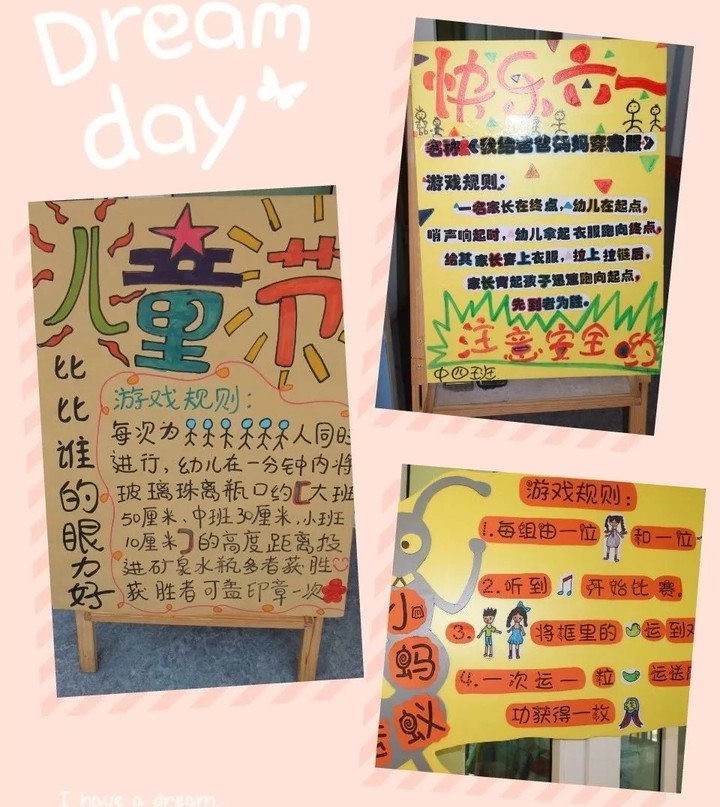 Dream
day
儿童节
比比谁的眼力好
游戏规则:
每次为人同时
进行,幼儿在一分钟内将
玻璃珠离瓶口约【大班
50厘米、中班30厘米,小班
10厘米】的高度距离投
进矿泉水瓶多者获胜
获胜者可盖印章一次
快乐六一
名称:《我给爸爸妈妈穿衣服》
游戏规则:
一名家长在终点,幼儿在起点,
哨声响起时,幼儿拿起衣服跑向终点,
给其家长穿上衣服,拉上拉链后,
家长背起孩子迅速跑向起点,
先到者为胜。
注意安全哟
中四班
小蚂蚁运
游戏规则:
1.每组由一位和一位
2.听到开始比赛。
3.将框里的运到对
4.一次运一粒运送成
功获得一枚
I have a dream